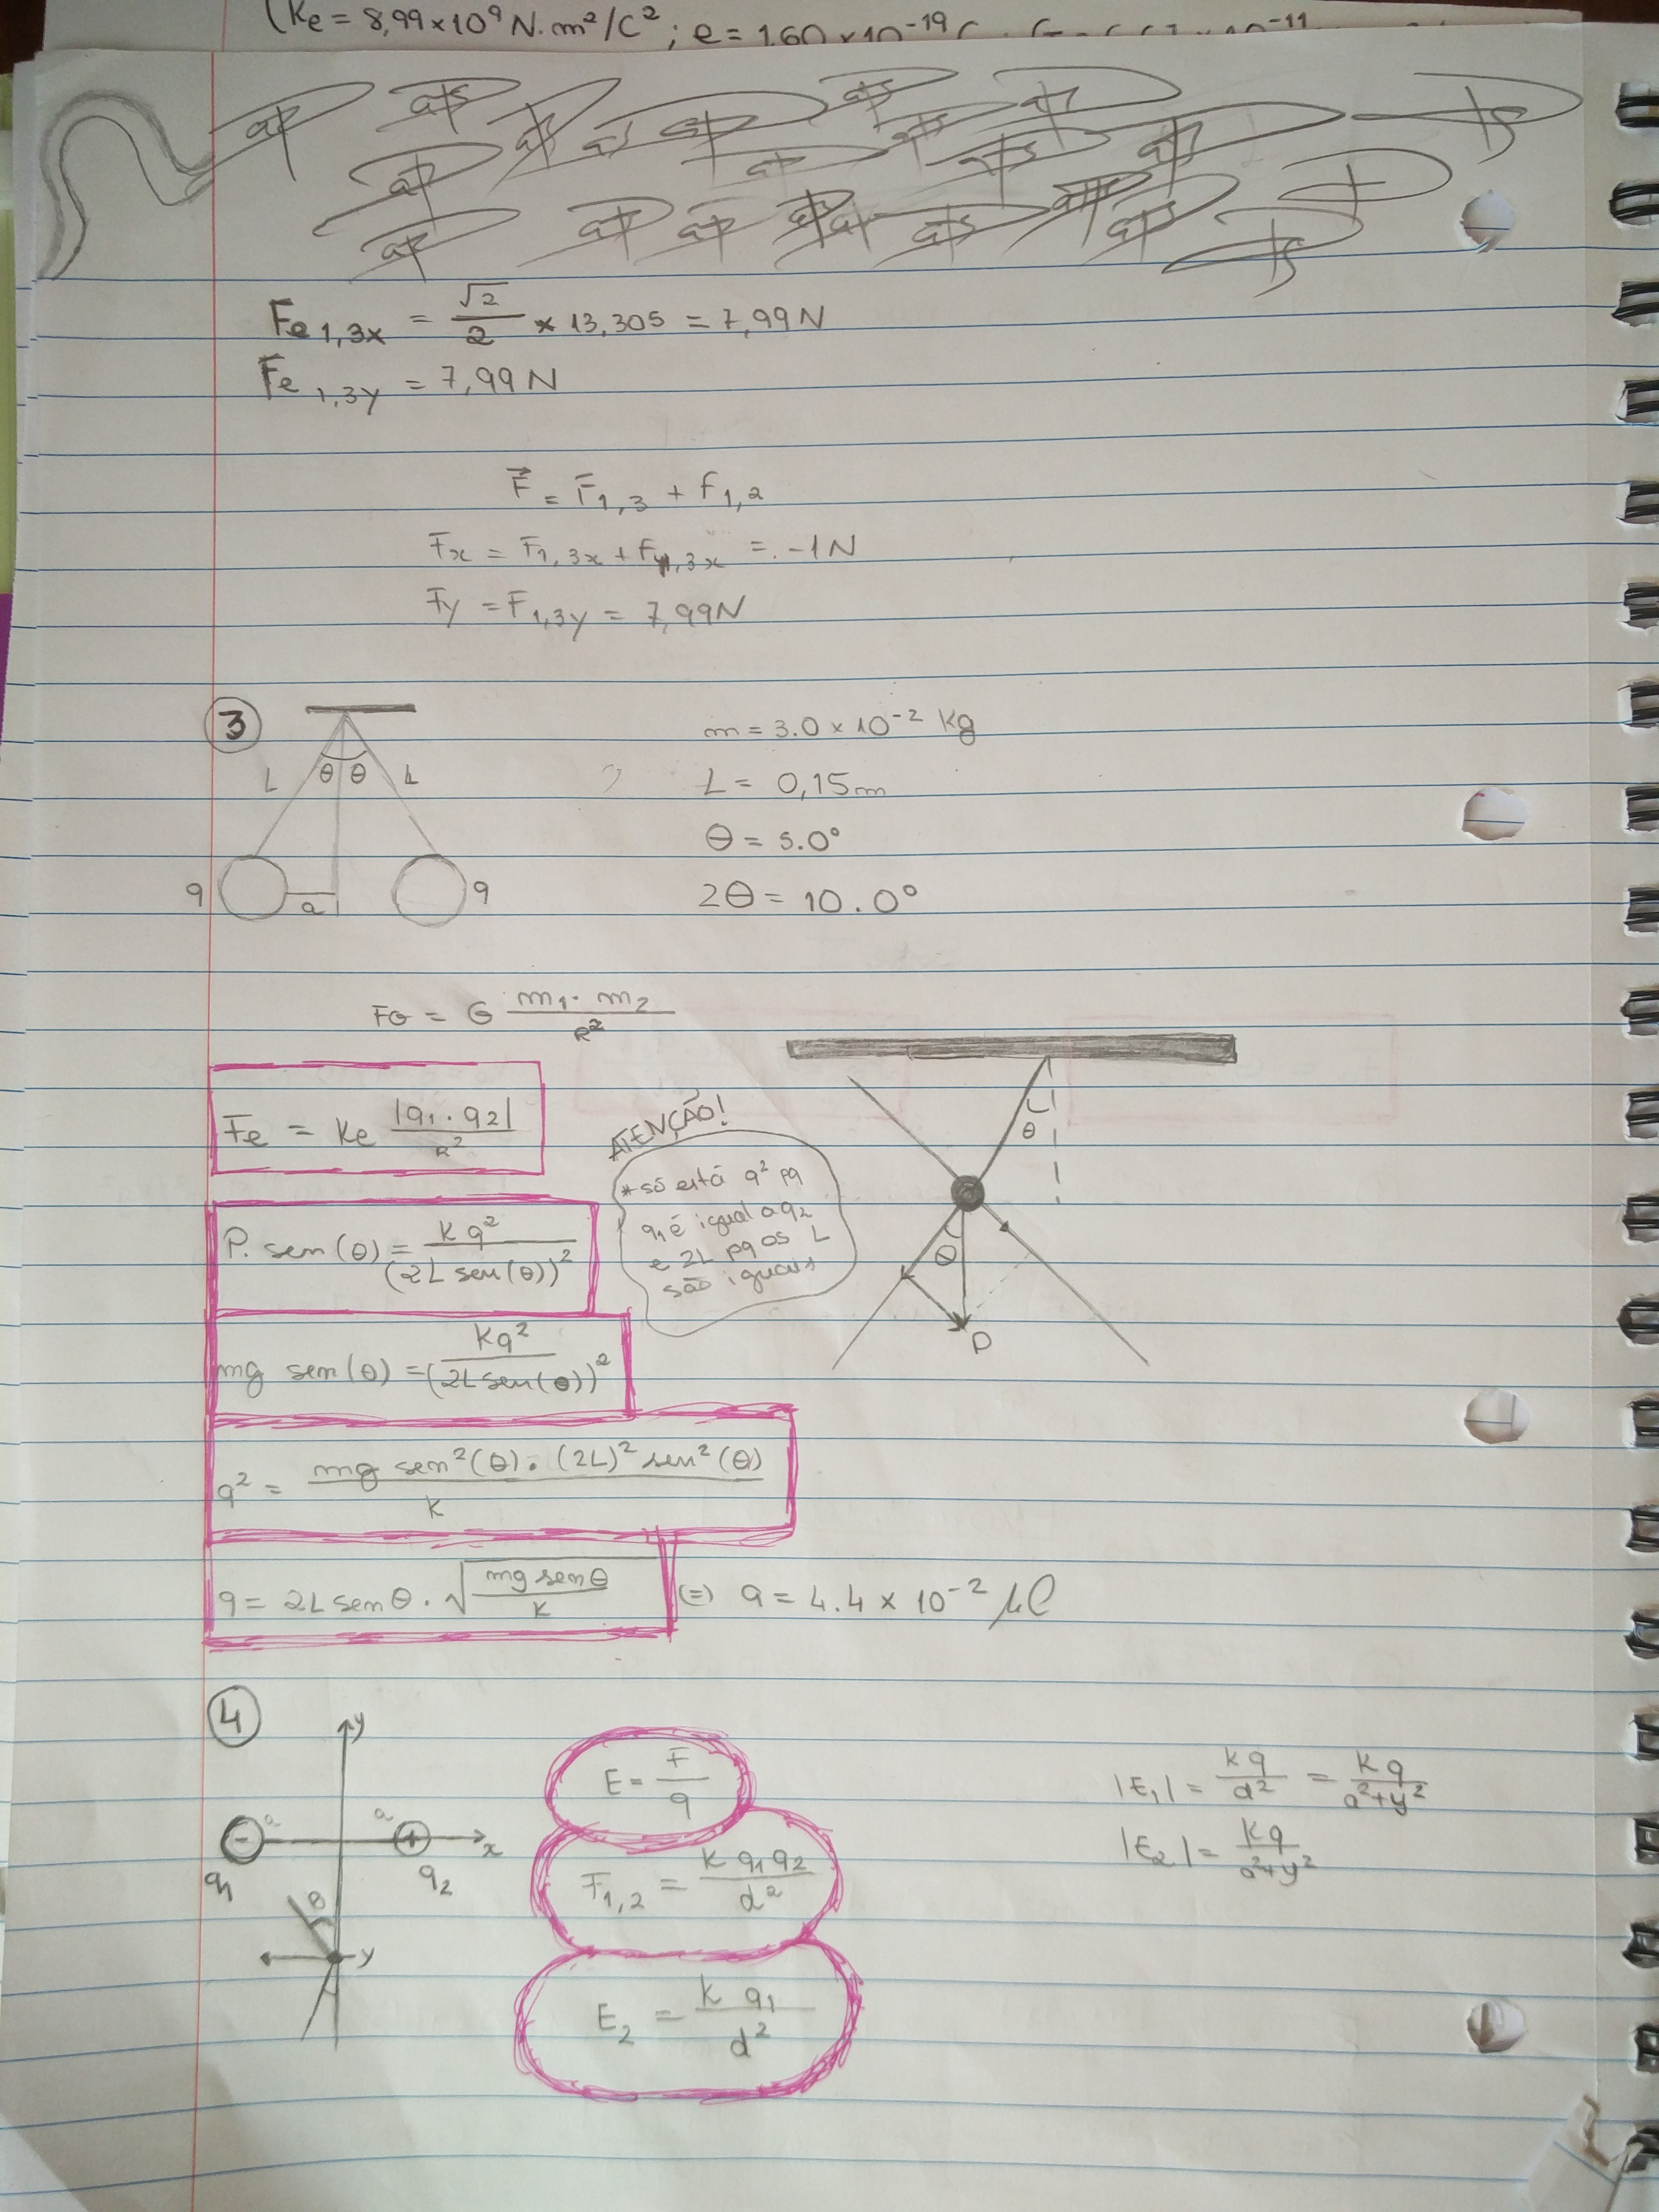 (Ke = 8,99 × 10⁹ N.m²/C² ; e = 1,60 × 10⁻¹⁹ C
Fe 1,3x = √2/2 × 13,305 = 7,99 N
Fe 1,3y = 7,99 N
F⃗ = F̄1,3 + f1,2
F̄x = F1,3x + F1,3x = -1N
F̄y = F1,3y = 7,99N
③
L θ θ L
q a q
m = 3.0 × 10⁻² kg
L = 0,15m
θ = 5.0°
2θ = 10.0°
FG = G m1 · m2 / R²
Fe = Ke |q1 · q2| / R²
ATENÇÃO!
* só está q² pq
q1 é igual a q2
e 2L pq os L
são iguais
θ
θ
P
P. sen(θ) = K q² / (2L sen(θ))²
mg sen(θ) = Kq² / (2L sen(θ))²
q² = mg sen²(θ) . (2L)² sen²(θ) / K
q = 2L sen θ . √(mg sen θ / K) (=) q = 4.4 × 10⁻² μC
④
y
- a a + x
q1 q2
θ
y
E = F / q
F1,2 = K q1 q2 / d²
E2 = K q1 / d²
|E1| = kq / d² = Kq / a²+y²
|E2| = Kq / a²+y²